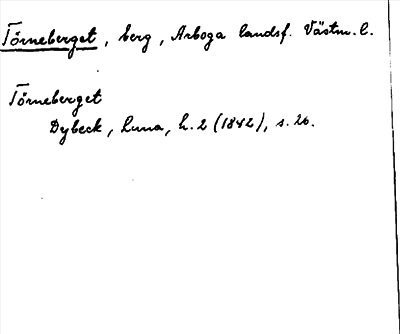 Törneberget, berg, Arboga landsf. Västm. l.
Törneberget
Dybeck, Runa, h. 2 (1842), s. 26.